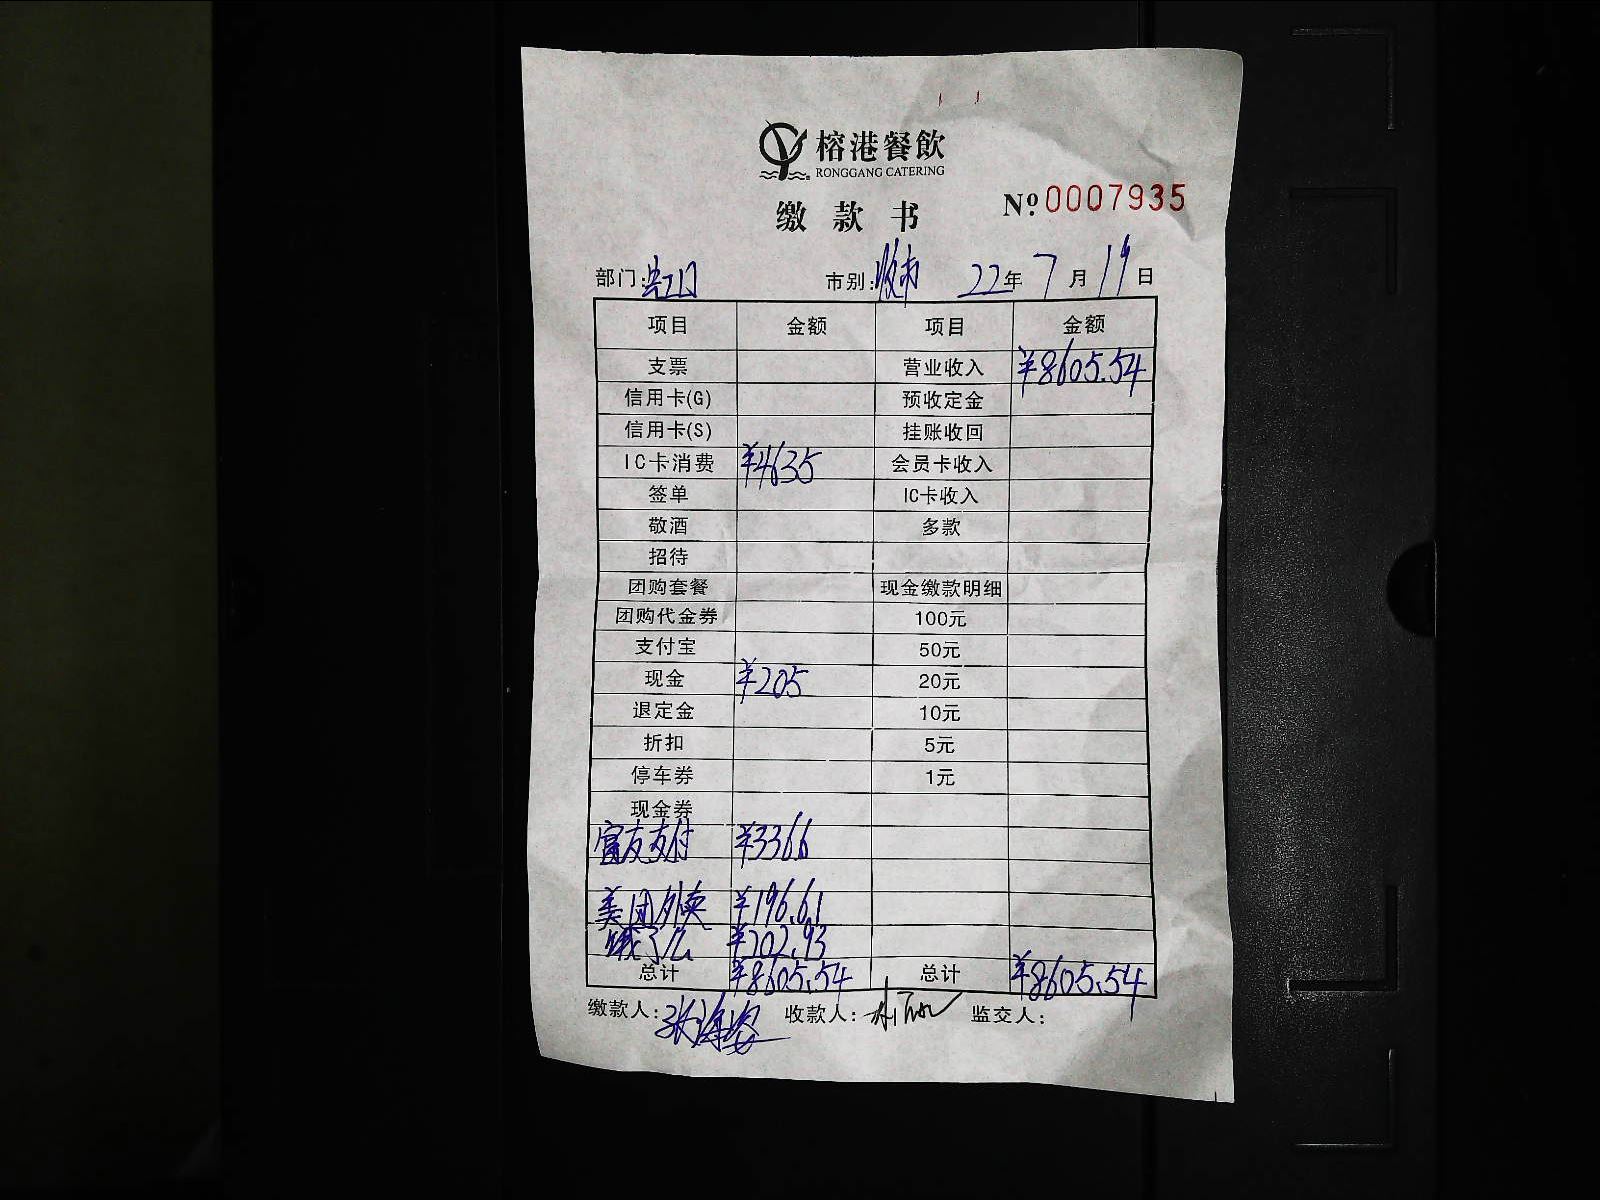 榕港餐飲
RONGGANG CATERING
缴款书
Nº 0007935
部门: 市别: 收市 22年7月19日
项目 金额 项目 金额
支票 营业收入 ¥8605.54
信用卡(G) 预收定金
信用卡(S) 挂账收回
IC卡消费 ¥4635 会员卡收入
签单 IC卡收入
敬酒 多款
招待
团购套餐 现金缴款明细
团购代金券 100元
支付宝 50元
现金 ¥205 20元
退定金 10元
折扣 5元
停车券 1元
现金券
富友支付 ¥3366
美团外卖 ¥196.61
饿了么 ¥202.93
总计 ¥8605.54 总计 ¥8605.54
缴款人: 张海姿 收款人: 监交人: